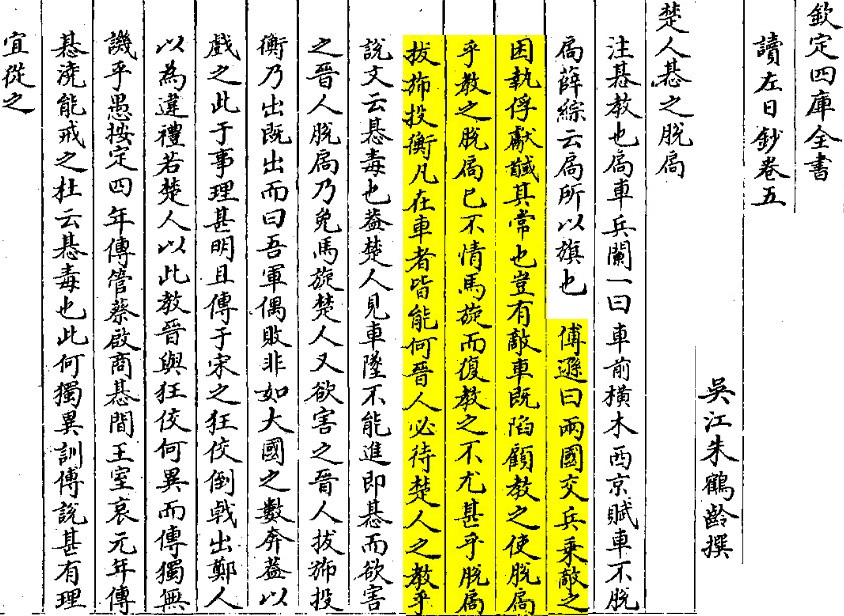 欽定四庫全書
讀左日鈔卷五
吳江朱鶴齡撰
楚人惎之脫扃
注惎教也扃車兵闌一曰車前橫木西京賦車不脫
扃薛綜云扃所以旗也 傅遜曰兩國交兵乗敵之
困執俘獻馘其常也豈有敵車既陷顧教之使脫扃
乎教之脫扃已不情馬旋而復教之不尤甚乎脫扃
拔斾投衡凡在車者皆能何晉人必待楚人之教乎
說文云惎毒也葢楚人見車墜不能進即惎而欲害
之晉人脫扃乃免馬旋楚人又欲害之晉人拔斾投
衡乃出既出而曰吾軍偶敗非如大國之數奔葢以
戲之此于事理甚明且傳于宋之狂佼倒戟出鄭人
以為違禮若楚人以此教晉與狂佼何異而傳獨無
譏乎愚按定四年傳管蔡啟商惎間王室哀元年傳
惎澆能戒之杜云惎毒也此何獨異訓傅說甚有理
宜從之